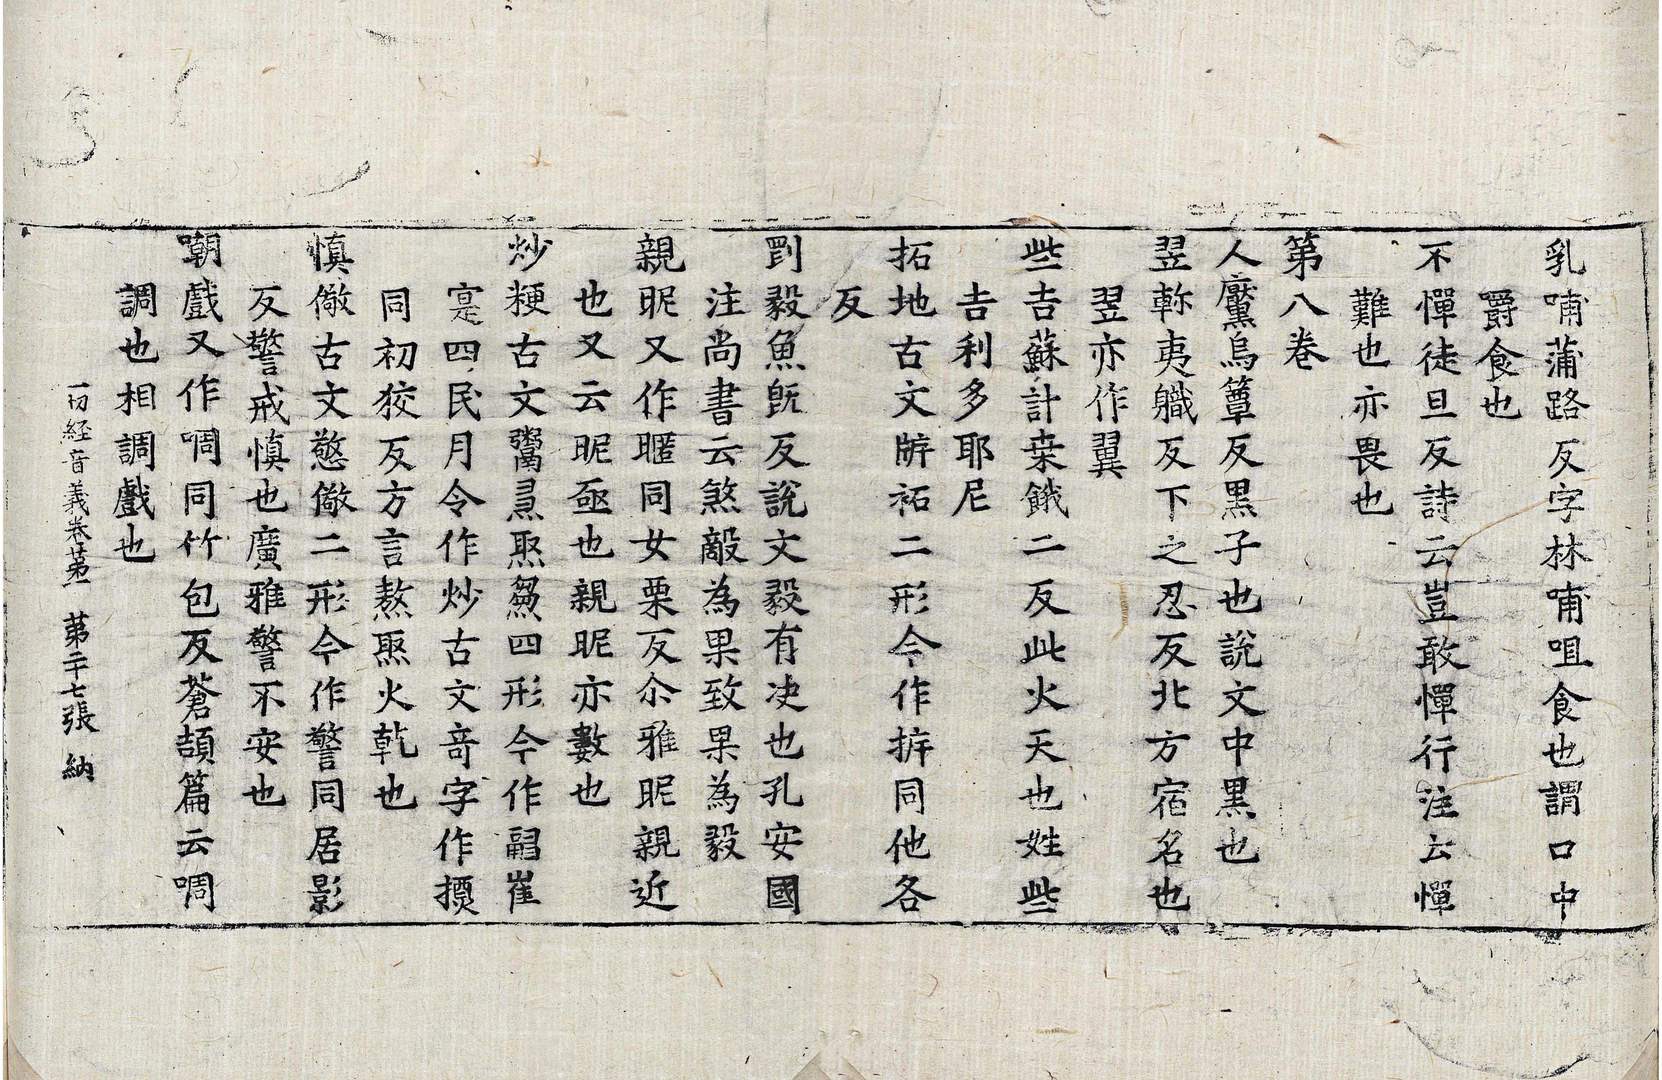 乳哺蒲路反字林哺咀食也謂口中
嚼食也
不憚徒旦反詩云豈敢憚行注云憚
難也亦畏也
第八卷
人黶烏簟反黑子也說文中黑也
翌軫夷職反下之忍反北方宿名也
翌亦作翼
些吉蘇計桒餓二反此火天也姓些
吉利多耶尼
拓地古文㡿袥二形今作㧻同他各
反
劉毅魚旣反說文毅有决也孔安國
注尚書云煞敵為果致果為毅
親昵又作暱同女栗反尒雅昵親近
也又云昵亟也親昵亦數也
炒粳古文𩱦𤈩㷅䅳四形今作䎫崔
寔四民月令作炒古文竒字作㩰
同初狡反方言熬㷅火乹也
慎儆古文憼儆二形今作警同居影
反警戒慎也廣雅警不安也
嘲戲又作啁同竹包反蒼頡篇云啁
調也相調戲也
一切経音義卷苐一　苐二十七張　納